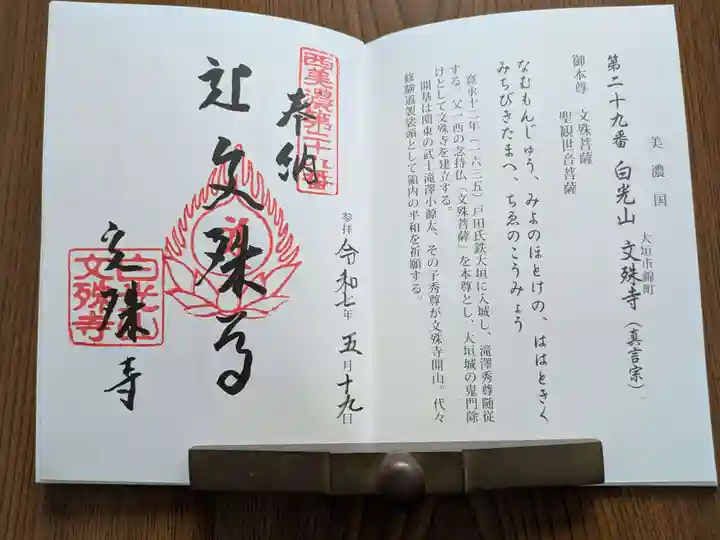 美濃国
大垣市錦町
第二十九番 白光山 文殊寺（真言宗）
御本尊 文殊菩薩
聖観世音菩薩
なむもんじゅう、みよのほとけの、ははときく
みちびきたまへ、ちゑのこうみょう
寛永十二年（一六三五）戸田氏鉄大垣に入城し、滝澤秀尊随従
する。父一西の念持仏「文殊菩薩」を本尊とし、大垣城の鬼門除
けとして文殊寺を建立する。
開基は関東の武士滝澤小源太、その子秀尊が文殊寺開山。代々
修験道袈裟頭として領内の平和を祈願する。
西美濃第二十九番
奉納
参拝 令和七年 五月十九日
文殊
文殊寺
白光山
文殊寺